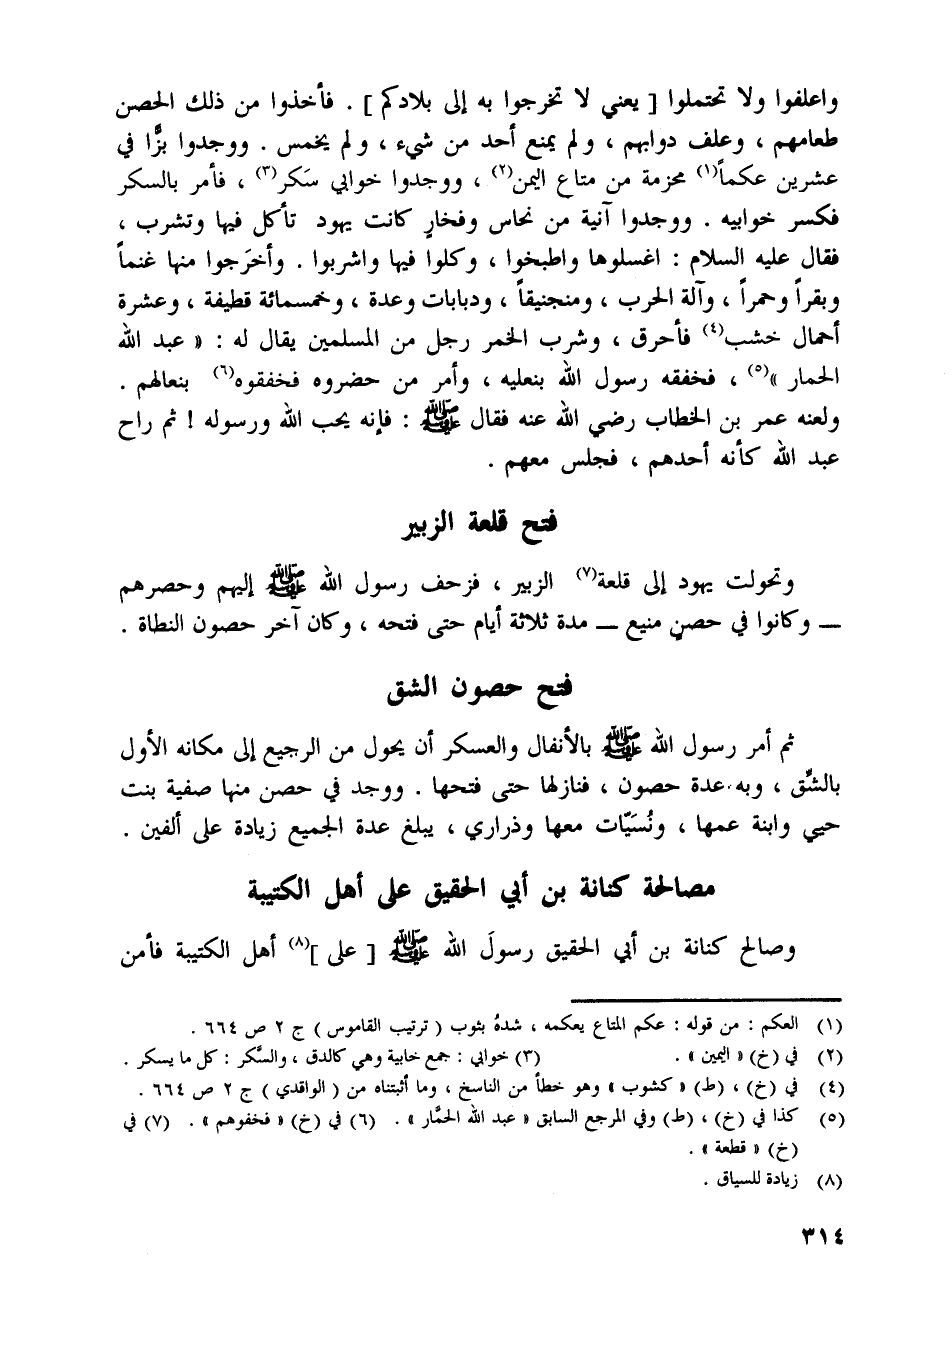 واعلفوا ولا تحتملوا [ يعني لا تخرجوا به إلى بلادكم ] . فأخذوا من ذلك الحصن
طعامهم ، وعلف دوابهم ، ولم يمنع أحد من شيء ، ولم يخمس . ووجدوا بزًّا في
عشرين عكماً(١) محزمة من متاع اليمن(٢) ، ووجدوا خوابي سَكر(٣) ، فأمر بالسكر
فكسر خوابيه . ووجدوا آنية من نحاس وفخارٍ كانت يهود تأكل فيها وتشرب ،
فقال عليه السلام : اغسلوها واطبخوا ، وكلوا فيها واشربوا . وأخرَجوا منها غنماً
وبقراً وحمراً ، وآلة الحرب ، ومنجنيقاً ، ودبابات وعدة ، وخمسمائة قطيفة ، وعشرة
أحمال خشب(٤) فأحرق ، وشرب الخمر رجل من المسلمين يقال له : « عبد الله
الحمار »(٥) ، فخفقه رسول الله بنعليه ، وأمر من حضروه فخفقوه(٦) بنعالهم .
ولعنه عمر بن الخطاب رضي الله عنه فقال ﷺ : فإنه يحب الله ورسوله ! ثم راح
عبد الله كأنه أحدهم ، فجلس معهم .
فتح قلعة الزبير
وتحولت يهود إلى قلعة(٧) الزبير ، فزحف رسول الله ﷺ إليهم وحصرهم
— وكانوا في حصنٍ منيع — مدة ثلاثة أيام حتى فتحه ، وكان آخر حصون النطاة .
فتح حصون الشق
ثم أمر رسول الله ﷺ بالأنفال والعسكر أن يحول من الرجيع إلى مكانه الأول
بالشِّق ، وبه عدة حصون ، فنازلها حتى فتحها . ووجد في حصن منها صفية بنت
حيي وابنة عمها ، ونُسَيَّات معها وذراري ، يبلغ عدة الجميع زيادة على ألفين .
مصالحة كنانة بن أبي الحقيق على أهل الكتيبة
وصالح كنانة بن أبي الحقيق رسولَ الله ﷺ [ على ](٨) أهل الكتيبة فأمن
(١) العكم : من قوله : عكم المتاع يعكمه ، شدهُ بثوب ( ترتيب القاموس ) ج ٢ ص ٦٦٤ .
(٢) في (خ) « اليمين » . (٣) خوابي : جمع خابية وهي كالدق ، والسَّكر : كل ما يسكر .
(٤) في (خ) ، (ط) « كشوب » وهو خطأ من الناسخ ، وما أثبتناه من ( الواقدي ) ج ٢ ص ٦٦٤ .
(٥) كذا في (خ) ، (ط) وفي المرجع السابق « عبد الله الحمَّار » . (٦) في (خ) « فخفوهم » . (٧) في
(خ) « قطعة » .
(٨) زيادة للسياق .
٣١٤